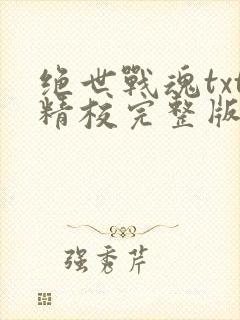 绝世戰魂txt
精校完整版
强秀芹